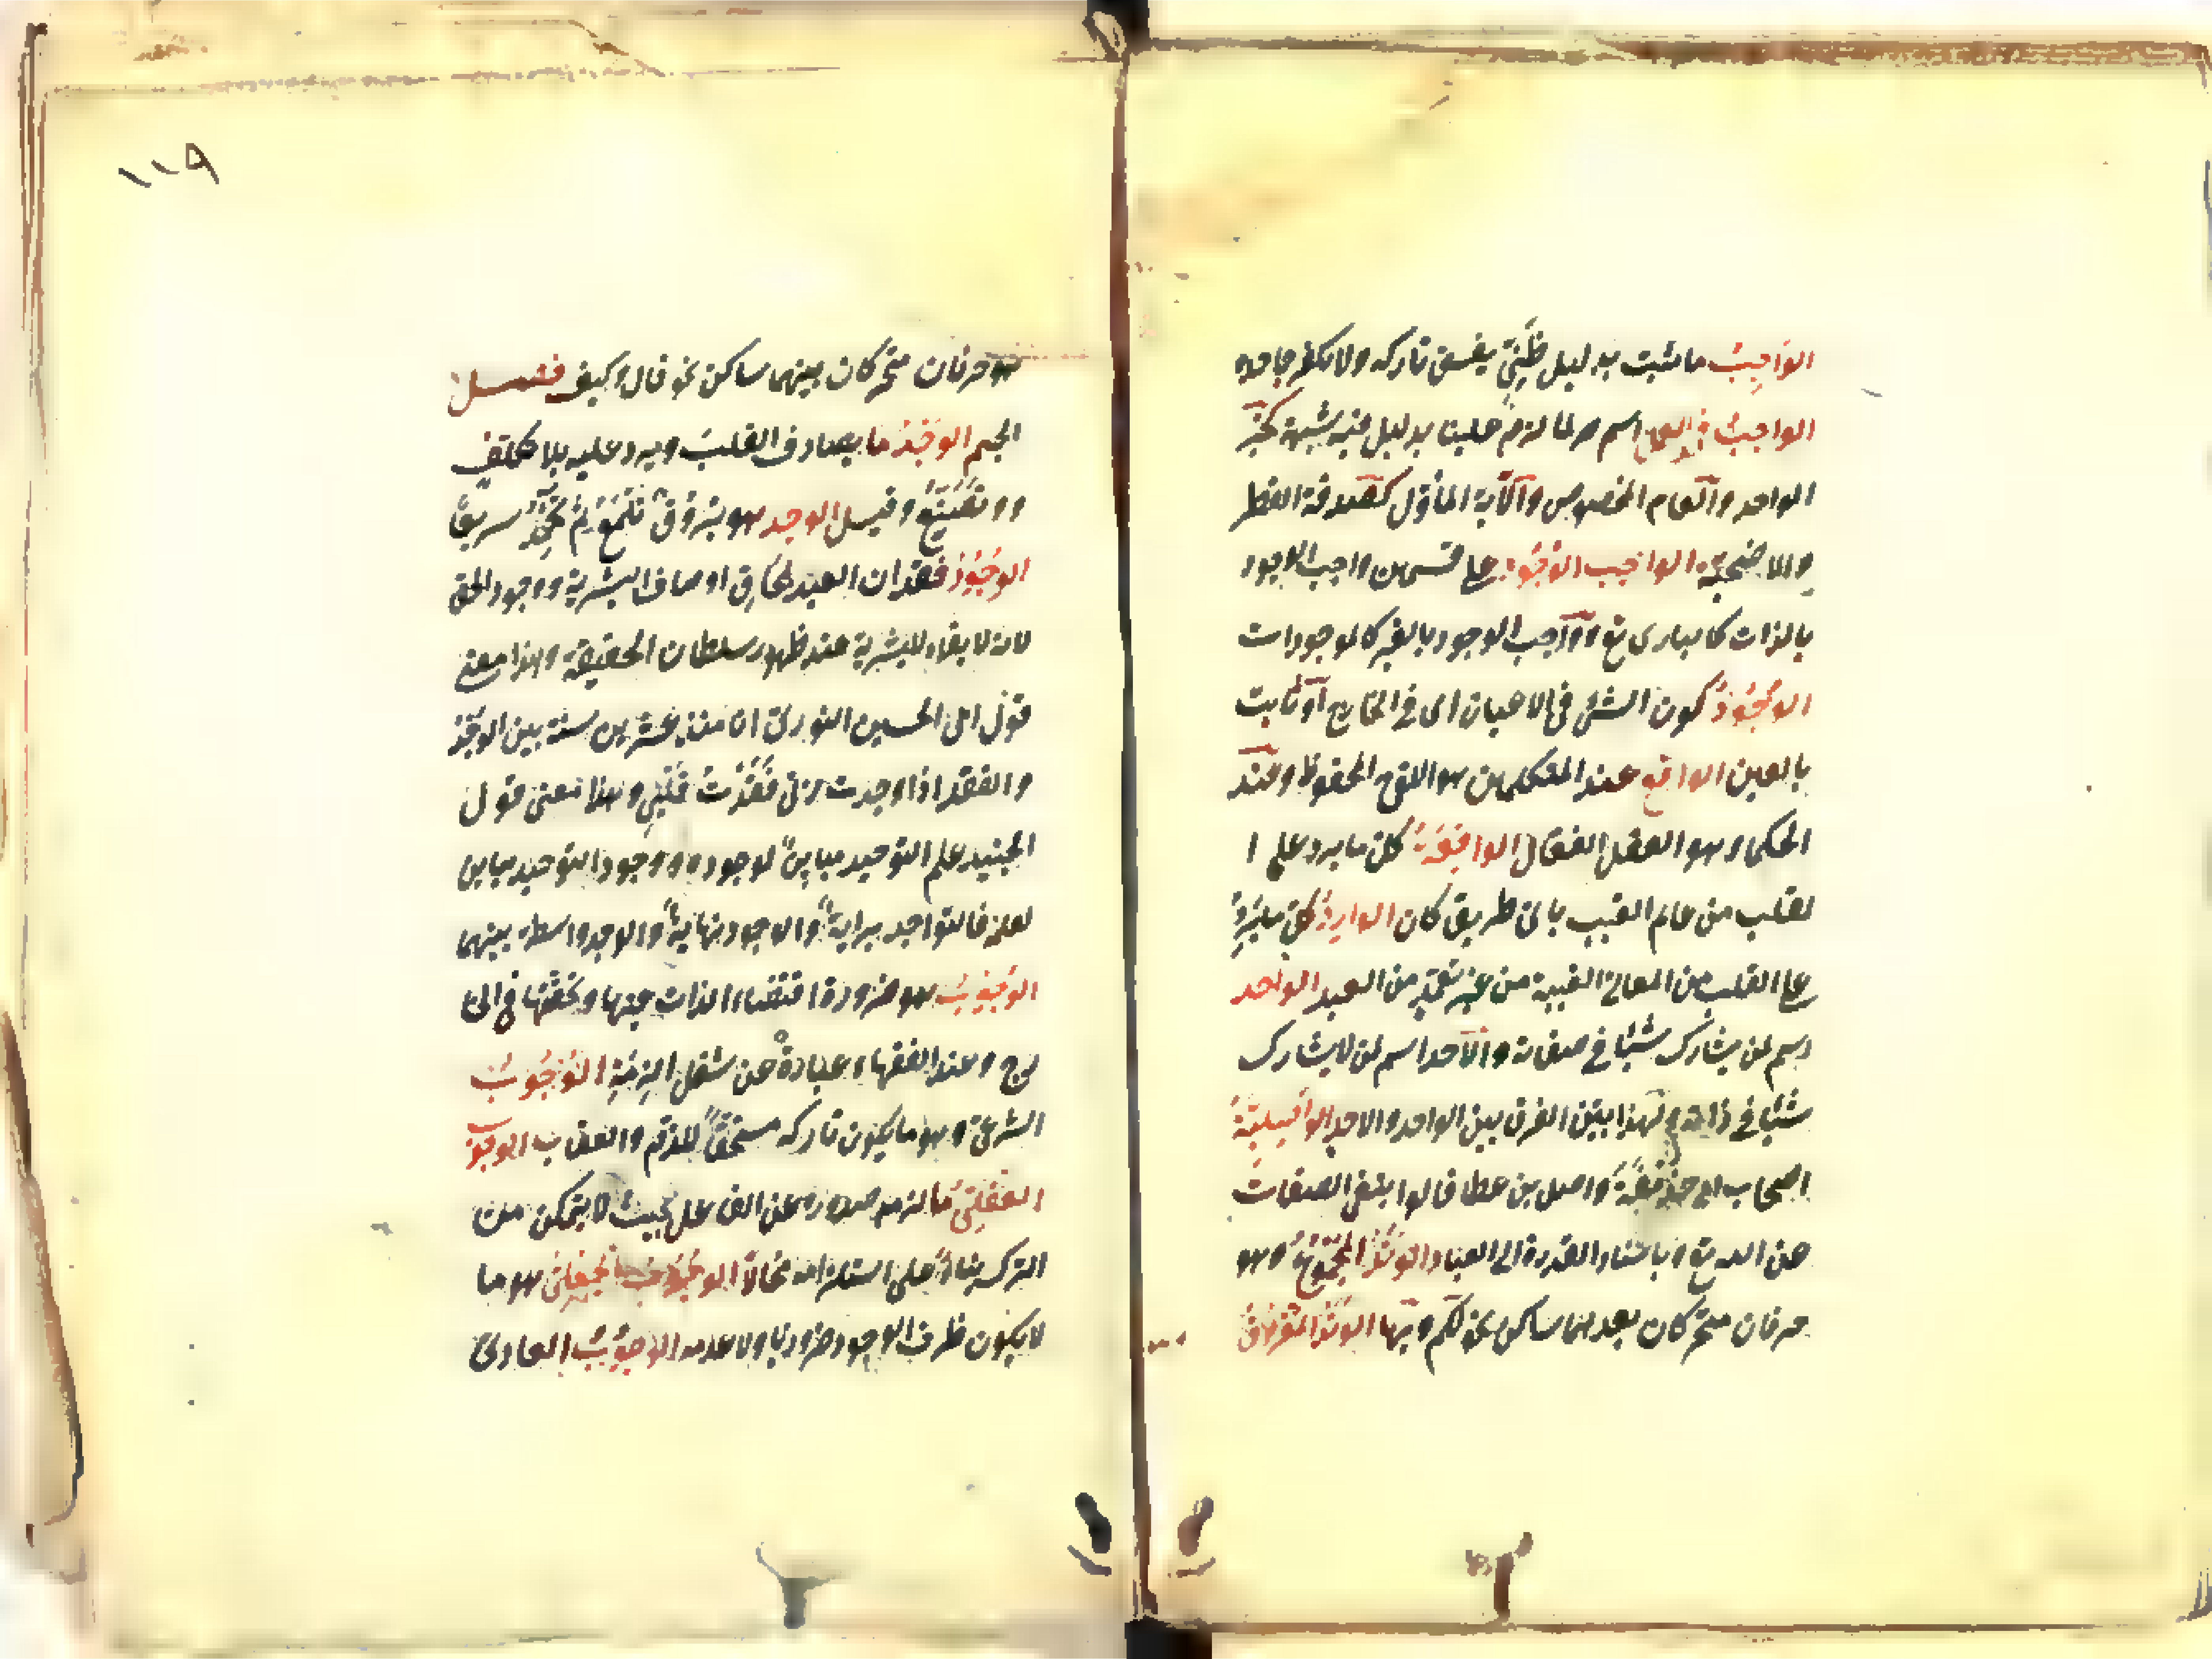 الواجِبُ ما ثبت بدليل ظَنِّيٍّ يفسق تاركه ولا يكفر جاحده
الواجبُ في العمل اسم لما لزم علينا بدليل فيه شبهة كخبر
الواحد والعام المخصوص والآية المأوّل كصدقة الفطر
والاضحية الواجب الوُجُود على قسمين واجب الوجود
بالذات كالباري تع وواجب الوجود بالغير كالموجودات
الوُجُودُ كون الشئ في الاعيان اى في الخارج او ثابت
بالعين الواقع عند المتكلمين هو اللوح المحفوظ وعند
الحكماء هو العقل الفعّال الواقِعَةُ كلّ ما يرد على ا
لقلب من عالم الغيب باىّ طريق كان الوارِدُ كلّ ما يَرِدُ
على القلب من المعانى الغيبية من غير تعمّد من العبد الواحد
اسم لمن يشارك شيئا في صفاته والاحد اسم لمن لايشارك
شيئا في ذاته وبهذا بيّن الفرق بين الواحد والاحد الواصِليّةُ
اصحاب ابى حذيفة واصل بن عطا قالوا بنفى الصفات
عن الله تع وباسناد القدرة الى العباد الوَتَدُ المجْمُوعُ وهو
حرفان متحركان بعدهما ساكن نحو لكم وبها الوَتَدُ المَفْرُوقُ
هو حرفان متحركان بينهما ساكن نحو قال وكيف فصل
الجيم الوَجْدُ ما يصادف القلبَ ويرد عليه بلا تكلّفٍ
وتصنّع وقيل الوجد هو بُرُوق تَلْمَعُ ثُمَّ تخمد سريعًا
الوُجُودُ فقدان العبد بمحاق اوصاف البشرية ووجود الحق
لانه لا بقاء للبشرية عند ظهور سلطان الحقيقة وهذا معنى
قول ابى الحسين النورىّ انا منذ عشرين سنة بين الوجْد
والفقد اذا وجدت ربّى فَقَدْتُ قَلْبِى وهذا معنى قول
الجنيد علم التوحيد مباينٌ لوجوده ووجود التوحيد مباين
لعلمه فالتواجد بداية والوجود نهاية والوجد واسطة بينهما
الوُجُوبُ هو ضرورة اقتضاء الذات عينها وتحققها في الخا
رج وعند الفقهاء عبارة عن شغل الذِمّةِ الوُجُوبُ
الشرعىّ وهو ما يكون تاركه مستحقًّا للذمّ والعقاب الوجوب
العقلِىُّ ما لزم صدوره عن الفاعل بحيث لا يتمكن من
الترك بناءً على استلزامه محالاً الوُجُوب هو ما
لا يكون طرف الوجود ضروريا ولا عدمه الوجوبُ العادىّ
١١٩